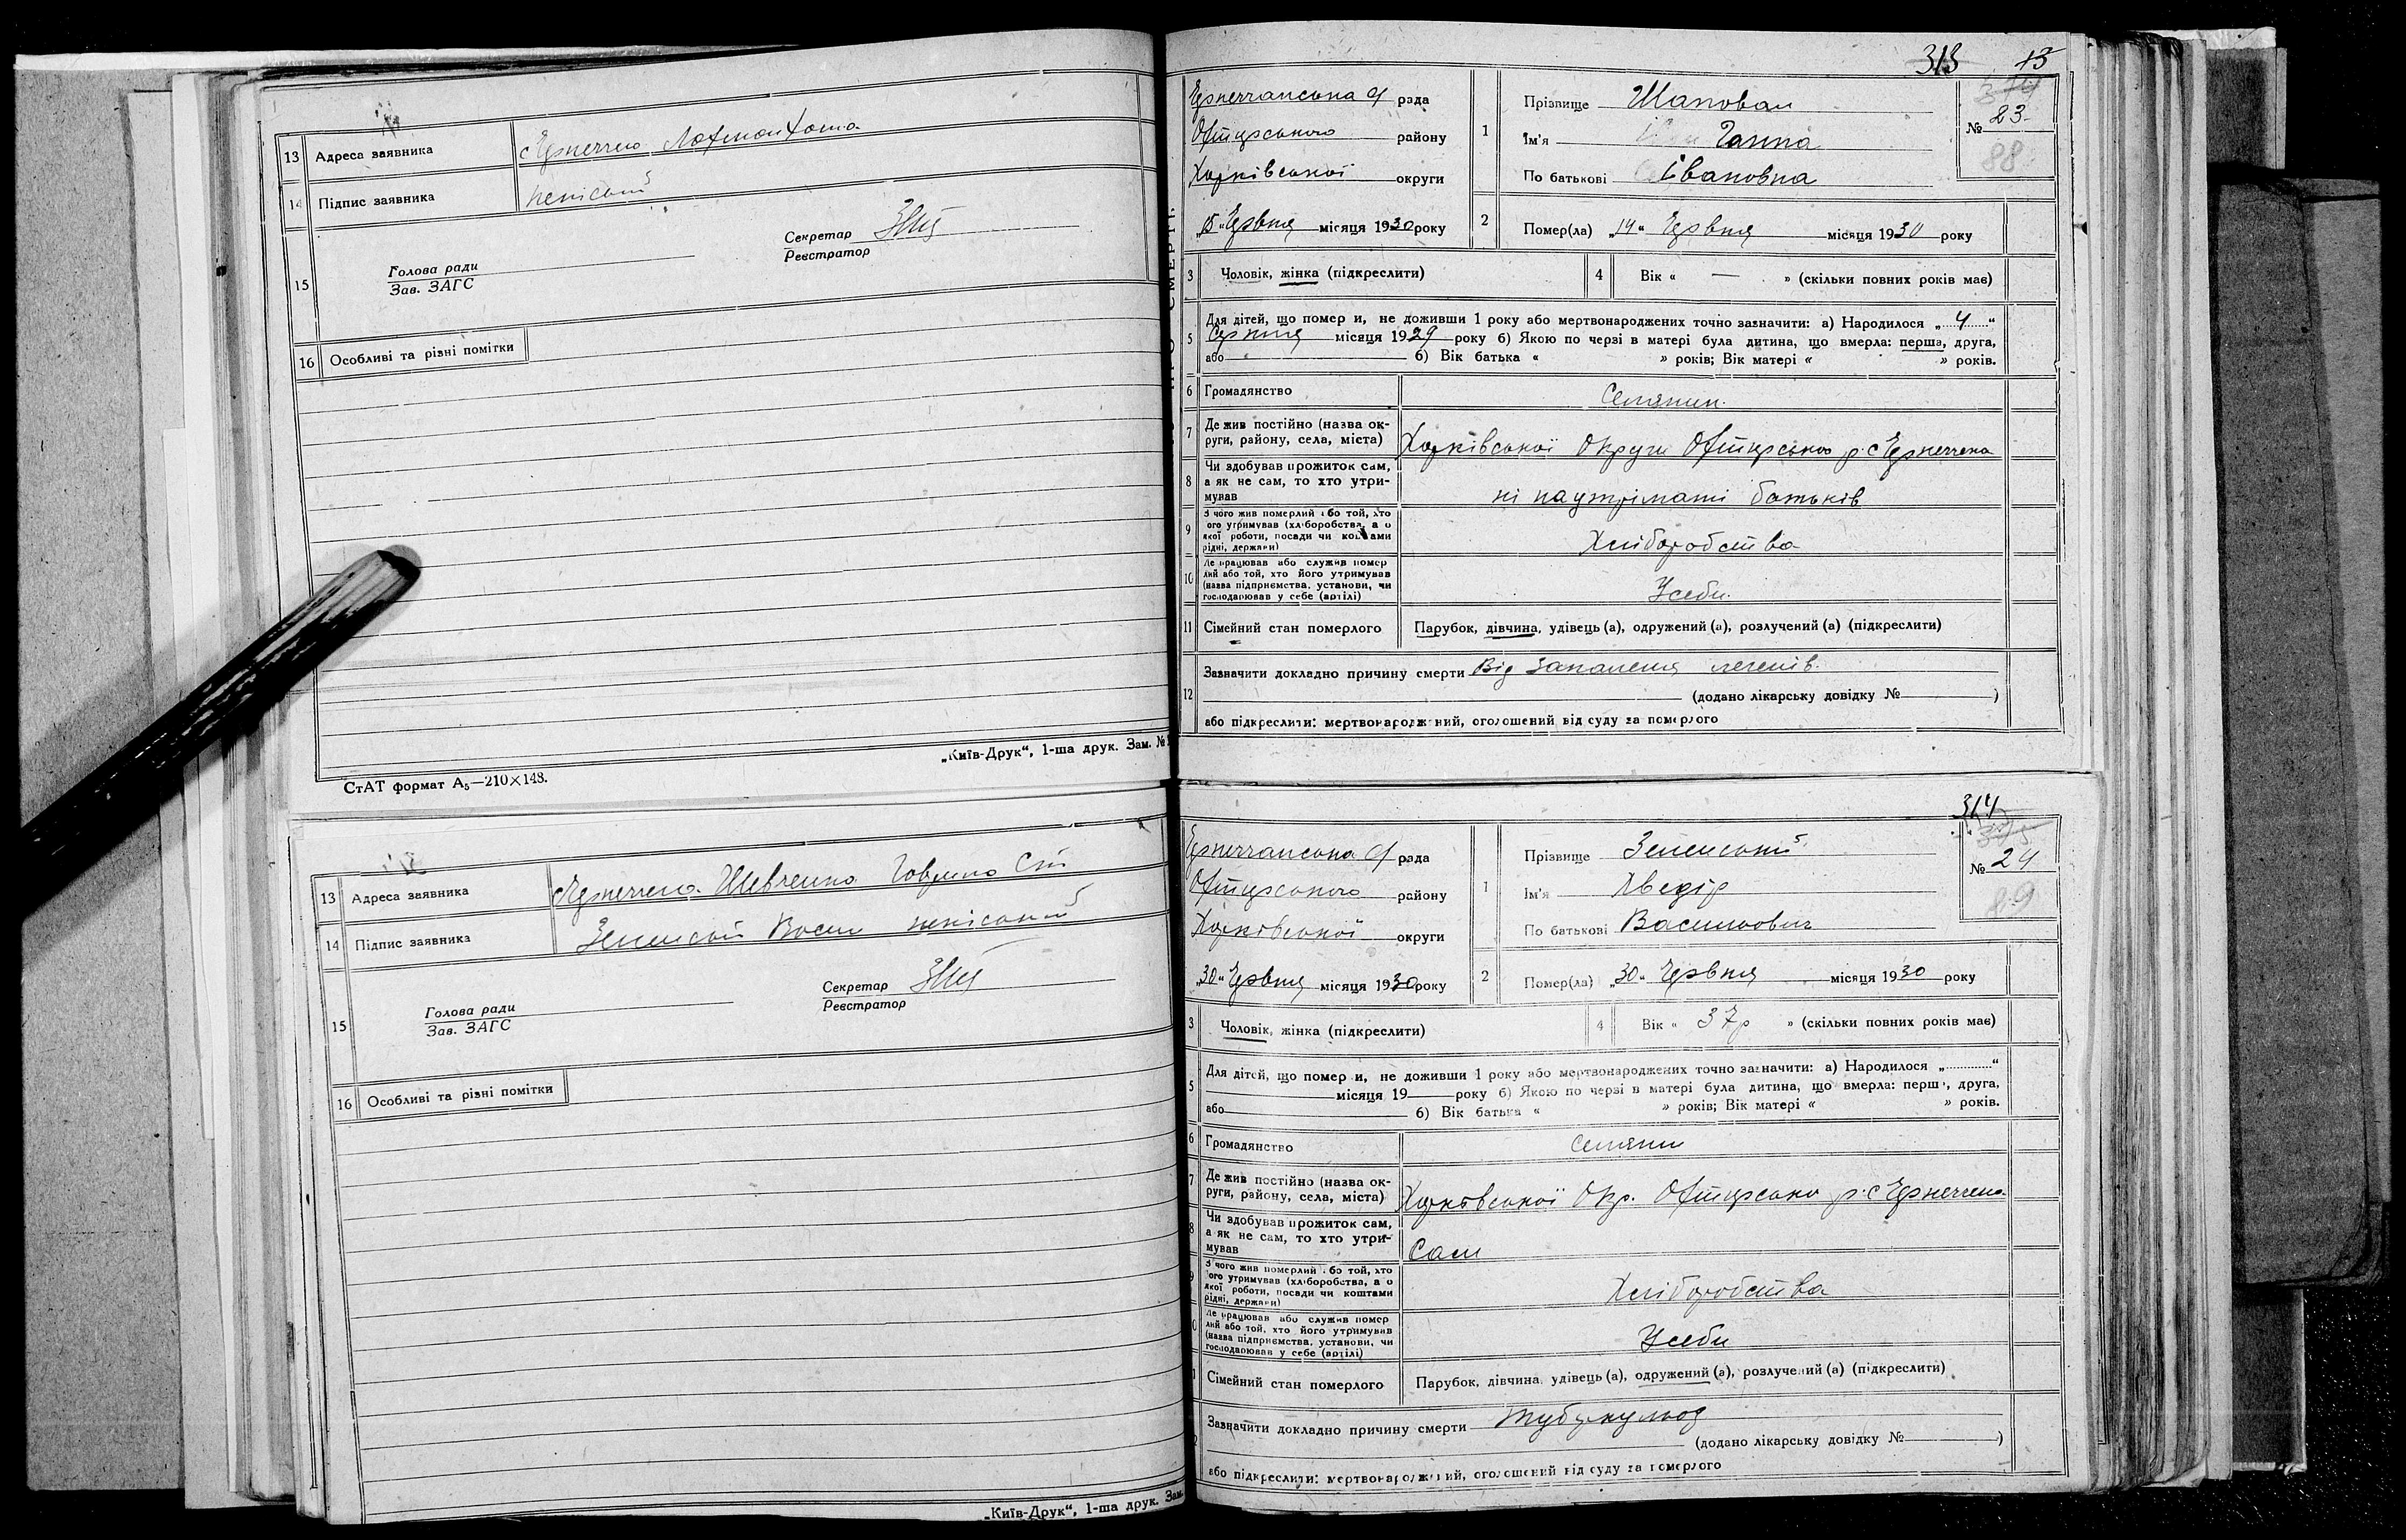 13 Адреса заявника
14 Підпис заявника неписьм
15 Голова ради
Зав. ЗАГС
Секретар
Реєстратор
16 Особливі та різні помітки
„Київ-Друк“, 1-ша друк. Зам. №
СтАТ формат А5—210×148.
13 Адреса заявника Шевченко
14 Підпис заявника
15 Голова ради
Зав. ЗАГС
Секретар
Реєстратор
16 Особливі та різні помітки
„Київ-Друк“, 1-ша друк. Зам.
313 13
рада
району
Харківської округи
„15“ Червня місяця 1930 року
1 Прізвище Шаповал
Ім'я Ганна
По батькові Івановна
№ 23
88
2 Помер(ла) „14“ Червня місяця 1930 року
3 Чоловік, жінка (підкреслити)
4 Вік « — » (скільки повних років має)
5 Для дітей, що померли, не доживши 1 року або мертвонароджених точно зазначити: а) Народилося „4“
Серпня місяця 1929 року б) Якою по черзі в матері була дитина, що вмерла: перша, друга,
або б) Вік батька « » років; Вік матері « » років.
6 Громадянство Селянин
7 Де жив постійно (назва округи, району, села, міста) Харківської Округи
8 Чи здобував прожиток сам, а як не сам, то хто утримував ні на утрімані батьків
9 З чого жив померлий або той, хто його утримував (хліборобства, а о якої роботи, посади чи коштами рідні, держави) Хліборобства
10 Де працював або служив померлий або той, хто його утримував (назва підприємства, установи, чи господарював у себе (артілі) Усеби
11 Сімейний стан померлого Парубок, дівчина, удівець (а), одружений (а), розлучений (а) (підкреслити)
12 Зазначити докладно причину смерти Від запаленя легенів
(додано лікарську довідку № )
або підкреслити: мертвонароджений, оголошений від суду за померлого
314
рада
району
Харківської округи
„30“ Червня місяця 1930 року
1 Прізвище Зеленський
Ім'я Хведір
По батькові Васильович
№ 24
89
2 Помер(ла) „30“ Червня місяця 1930 року
3 Чоловік, жінка (підкреслити)
4 Вік « 37р » (скільки повних років має)
5 Для дітей, що померли, не доживши 1 року або мертвонароджених точно зазначити: а) Народилося „ “
місяця 19 року б) Якою по черзі в матері була дитина, що вмерла: перша, друга,
або б) Вік батька « » років; Вік матері « » років.
6 Громадянство Селянин
7 Де жив постійно (назва округи, району, села, міста) Харківської Окр.
8 Чи здобував прожиток сам, а як не сам, то хто утримував Сам
З чого жив померлий або той, хто його утримував (хліборобства, а о якої роботи, посади чи коштами рідні, держави) Хліборобства
Де працював або служив померлий або той, хто його утримував (назва підприємства, установи, чи господарював у себе (артілі) Усеби
Сімейний стан померлого Парубок, дівчина, удівець (а), одружений (а), розлучений (а) (підкреслити)
Зазначити докладно причину смерти туберкульоз
(додано лікарську довідку № )
або підкреслити: мертвонароджений, оголошений від суду за померлого